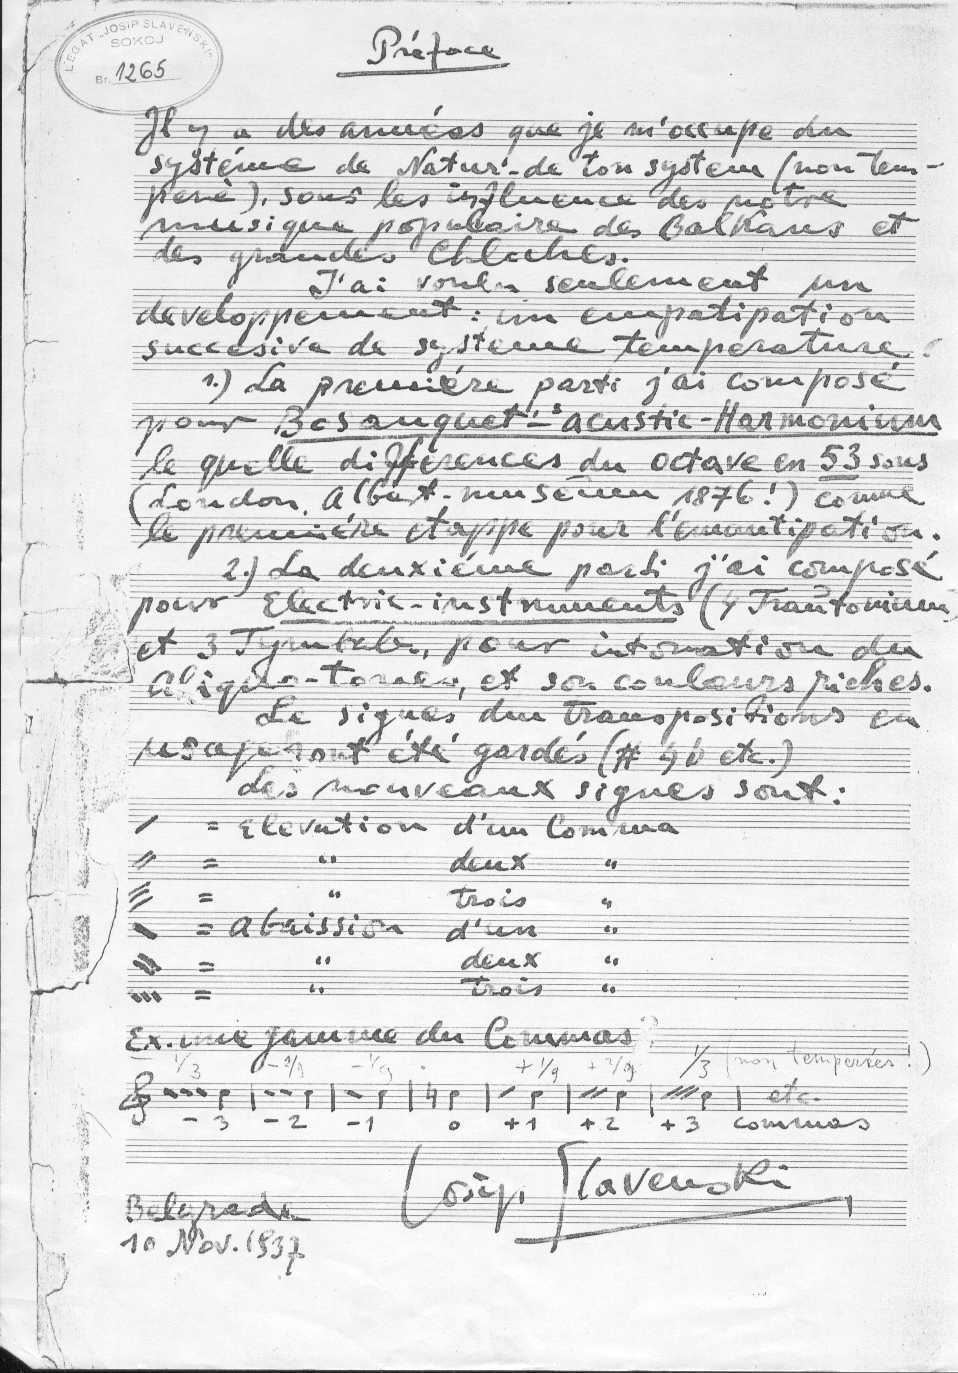 LEGAT „JOSIP SLAVENSKI“
SOKOJ
Br. 1265
Préface
Il y a des années que je m'occupe du
systéme de Natur-de ton system (non tem-
perè), sous les influence des notre
musique populaire des Balkans et
des grandes Cloches.
J'ai voulu seulement un
developpement: un
succesive de systeme temperature
1.) La premiére parti j'ai composé
pour Bosanquet's acustic-Harmonium
le quelle differences du octave en 53 sons
(London, Albert-museum 1876!) comme
le premiére etappe pour l'emantipation.
2.) La deuxiéme parti j'ai composé
pour Electric-instruments (4 Trautonium
et 3 pour intonation du
Aliquo-Tones, et son couleurs riches.
Le signes du transpositions en
usage sont été gardés (# ♮ b etc.)
Les nouveaux signes sont:
= Elevation d'un Comma
= " deux "
= " trois "
= abaission d'un "
= " deux "
= " trois "
Ex. une gamme du Commas
1/3 - 2/9 - 1/9 + 1/9 + 2/9 1/3 (non temperées!)
etc.
- 3 - 2 - 1 0 + 1 + 2 + 3 commas
Josip Slavenski
Belgrade
10 Nov. 1937